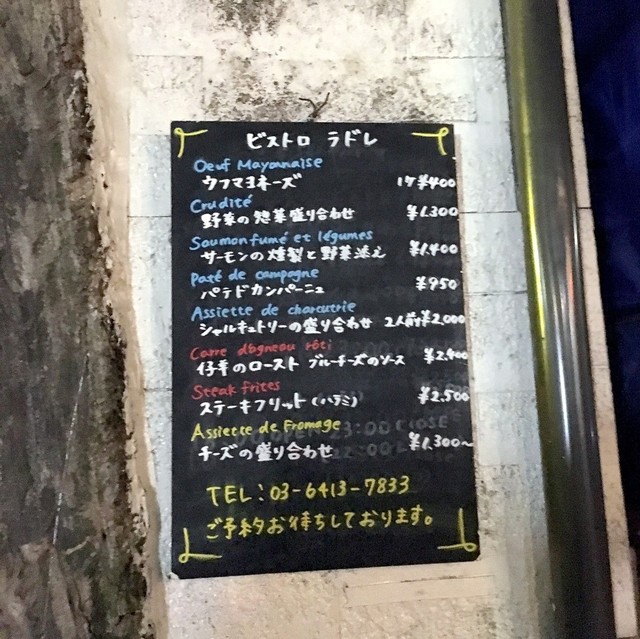 ビストロ ラドレ
Oeuf Mayonnaise
ウフマヨネーズ 1ケ ¥400
Crudité
野菜の惣菜盛り合わせ ¥1.300
Soumon fumé et légumes
サーモンの燻製と野菜添え ¥1.400
Paté de campagne
パテドカンパーニュ ¥950
Assiette de charcutrie
シャルキュトリーの盛り合わせ 2人前¥2,000
Carre dagneau rôti
仔羊のロースト ブルーチーズのソース ¥2,400
Steak frites
ステーキフリット(ハラミ) ¥2,500
Assiette de Fromage
チーズの盛り合わせ ¥1.300〜
TEL:03-6413-7833
ご予約お待ちしております。